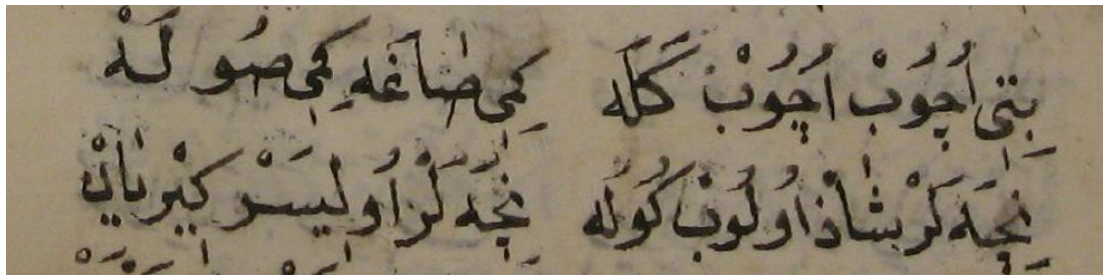 بِتِی اُچُوبْ اُچُوبْ گَلَه كِمِی صَاغَه كِمِی صُولَهْ
نِچَه لَرْ شَاذْ اُولُوبْ كُولَه نِچَه لَرْ اُولِیسَرْ كِیرْیَانْ